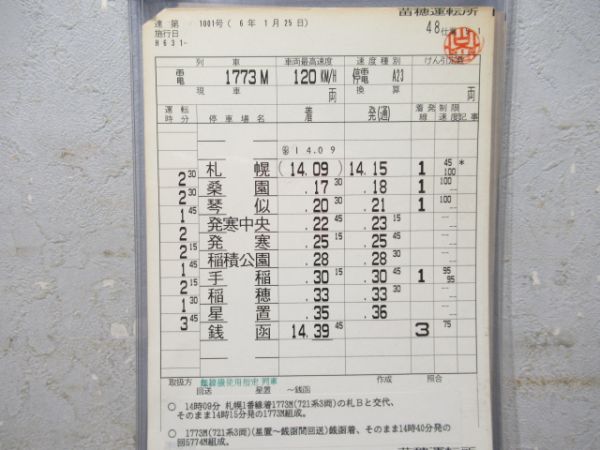 苗穂運転所
達 第 1001号 ( 6年 1月25日)
施行日
H 6 3 1 -
48 仕業
列車 車両最高速度 速度種別 けん引定数
電 1773M 120 KM/H 停電 A23
現車 両 換算 両
運転時分 停車場名 着 発(通) 着発線 制限速度 記事
14 09
札幌 (14.09) 14.15 1 45 100 *
2 30
桑園 .17 30 .18 1 100
2
琴似 .20 30 .21 1 100
1 45
発寒中央 .22 45 .23 15
2
発寒 .25 15 .25 45
2 15
稲積公園 .28 .28 30
1 45
手稲 .30 15 .30 45 1 95 95
2 15
稲穂 .33 .33 30
1 30
星置 .35 .36
3 45
銭函 14.39 45 3 75
取扱方 作成 照合
回送 星置 ～銭函
○ 14時09分 札幌1番線着1773M(721系3両)の札Bと交代、
そのまま14時15分発の1773M組成。
○ 1773M(721系3両)(星置～銭函間回送)銭函着、そのまま14時40分発の
回5774M組成。
苗穂運転所